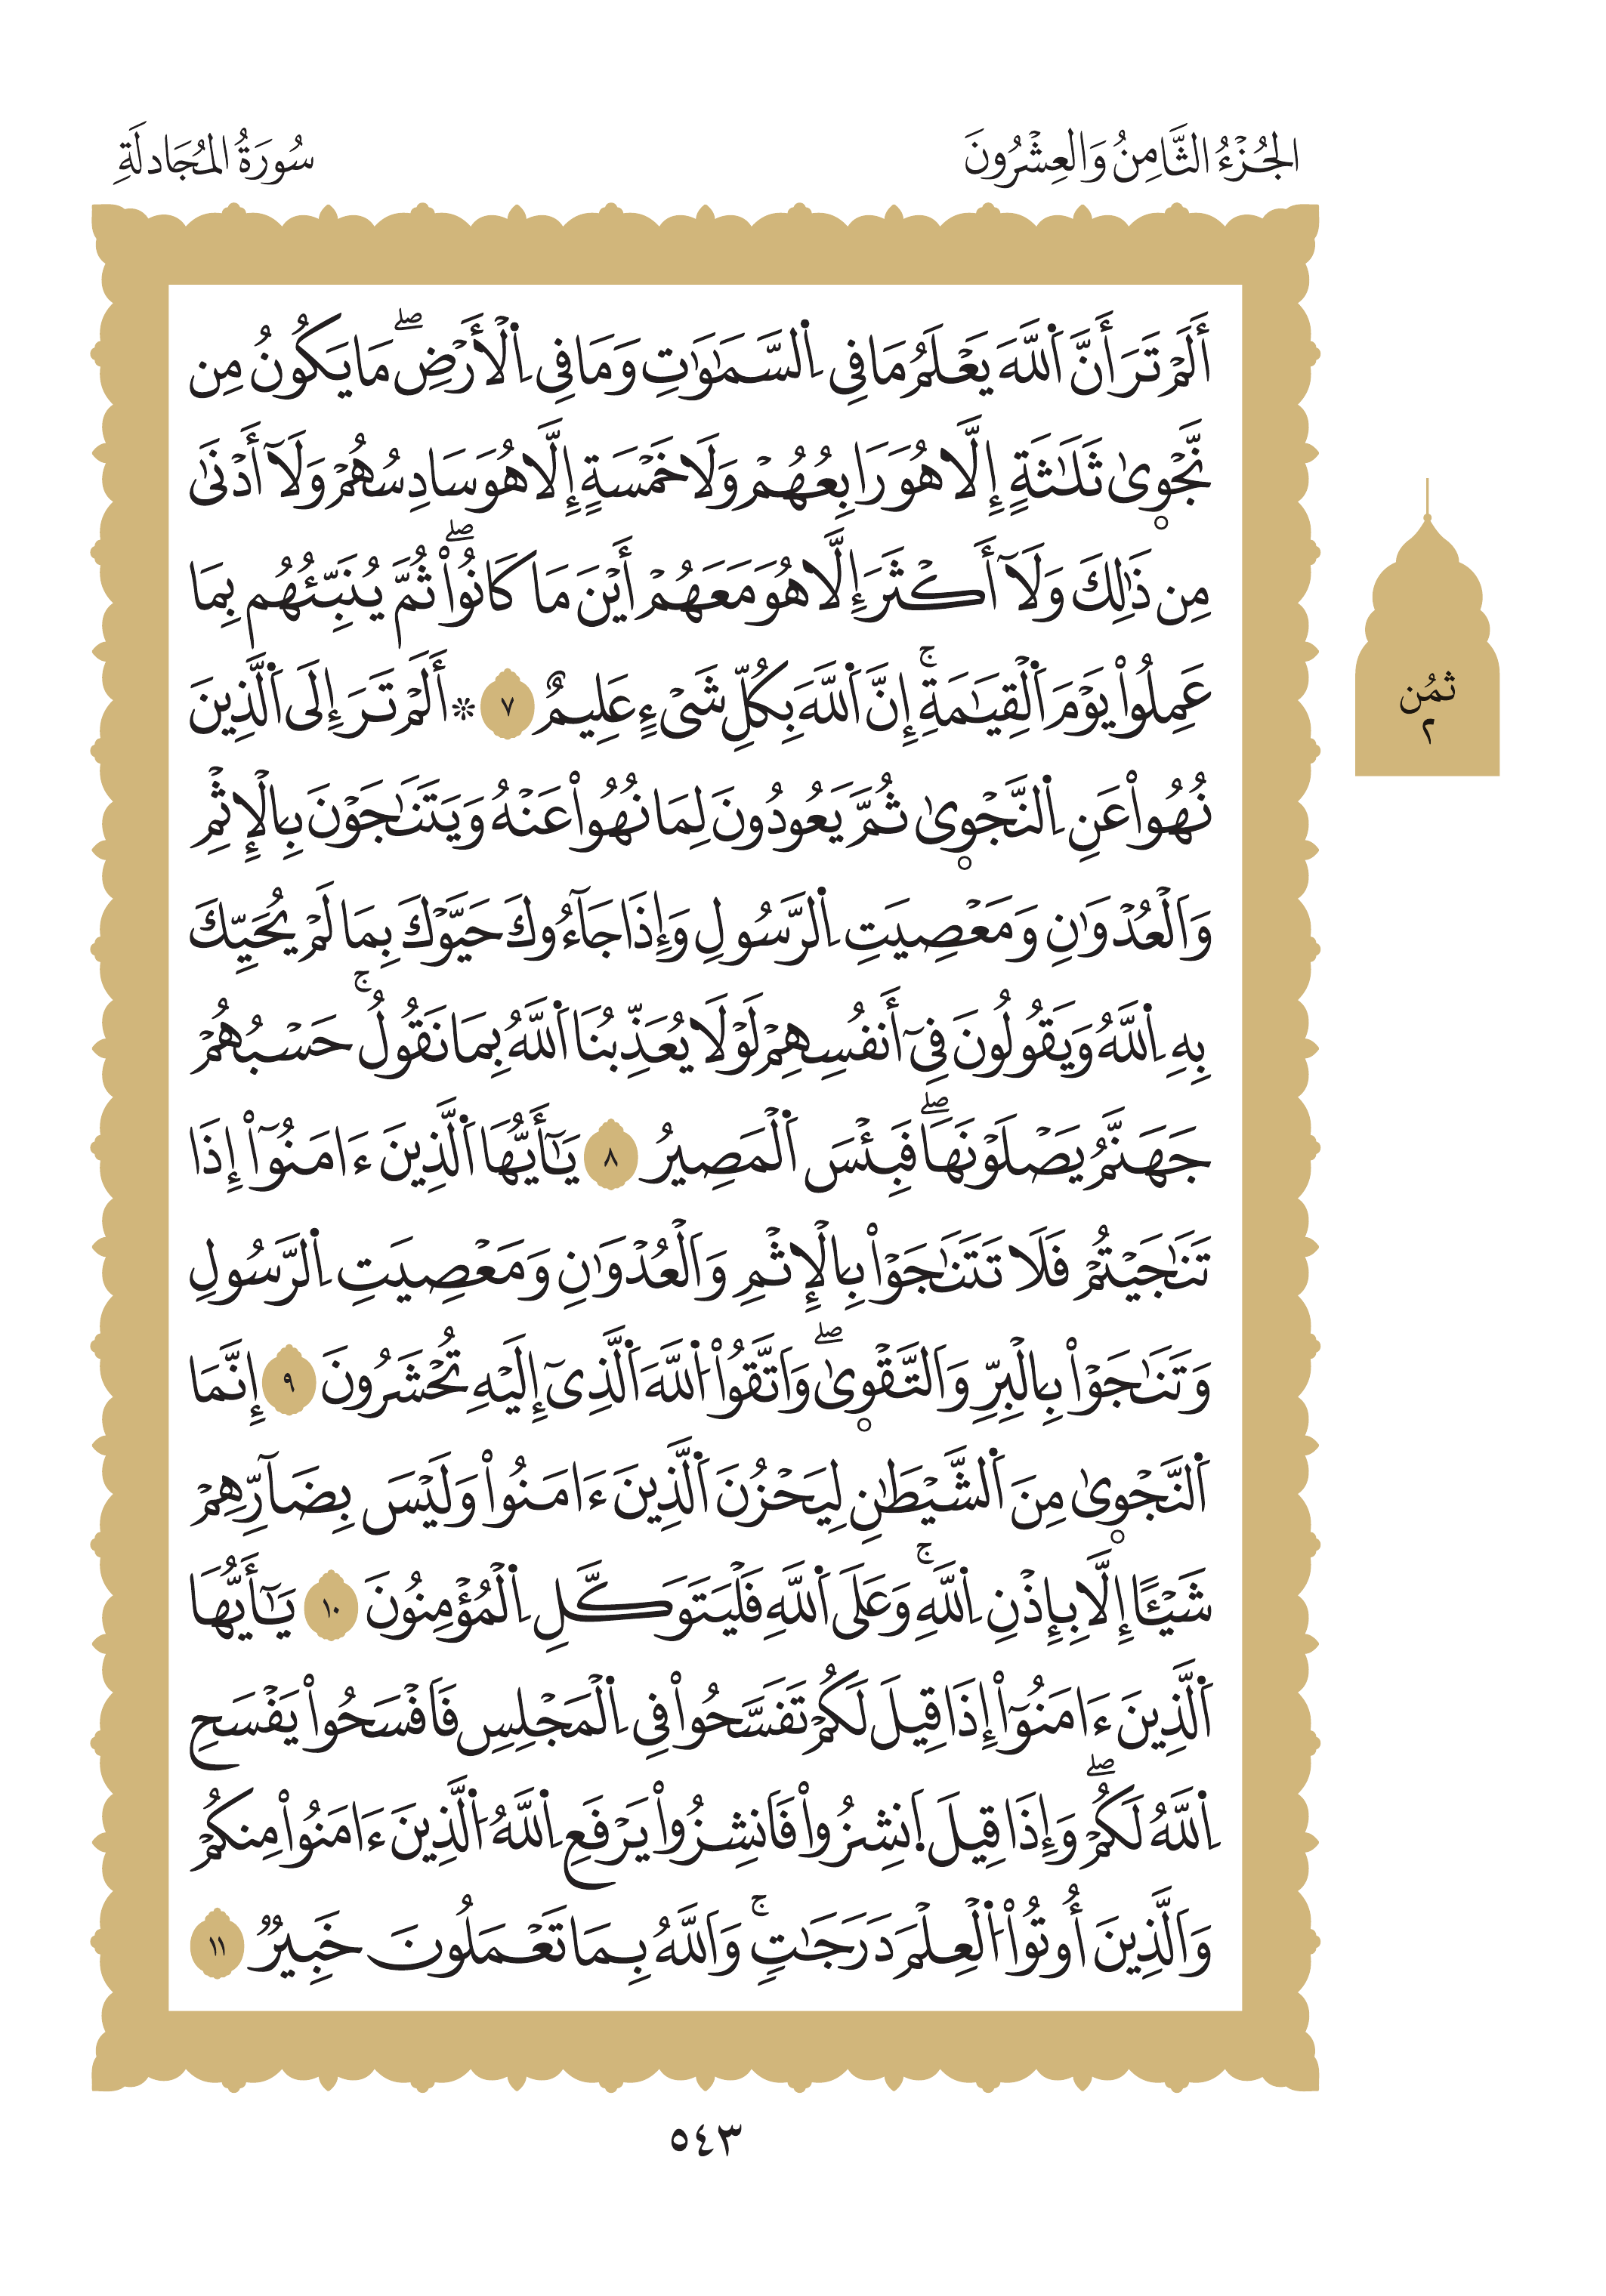 الجُزْءُ الثَّامِنُ وَالعِشْرُونَ
سُورَةُ المُجَادلَةِ
أَلَمْ تَرَ أَنَّ اَ۬للَّهَ يَعْلَمُ مَا فِي اِ۬لسَّمَٰوَٰتِ وَمَا فِي اِ۬لْأَرْضِۖ مَا يَكُونُ مِن
نَّجْو۪ىٰ ثَلَٰثَةٍ إِلَّا هُوَ رَابِعُهُمْ وَلَا خَمْسَةٍ إِلَّا هُوَ سَادِسُهُمْ وَلَآ أَدْنَىٰ
مِن ذَٰلِكَ وَلَآ أَكْثَرَ إِلَّا هُوَ مَعَهُمْ أَيْنَ مَا كَانُواْۖ ثُمَّ يُنَبِّئُهُم بِمَا
عَمِلُواْ يَوْمَ اَ۬لْقِيَٰمَةِۚ إِنَّ اَ۬للَّهَ بِكُلِّ شَىْءٍ عَلِيمٌ ٧ ۞ أَلَمْ تَرَ إِلَى اَ۬لَّذِينَ
نُهُواْ عَنِ اِ۬لنَّجْو۪ىٰ ثُمَّ يَعُودُونَ لِمَا نُهُواْ عَنْهُ وَيَتَنَٰجَوْنَ بِالْإِثْمِ
وَالْعُدْوَٰنِ وَمَعْصِيَتِ اِ۬لرَّسُولِ وَإِذَا جَآءُوكَ حَيَّوْكَ بِمَا لَمْ يُحَيِّكَ
بِهِ اِ۬للَّهُ وَيَقُولُونَ فِىٓ أَنفُسِهِمْ لَوْلَا يُعَذِّبُنَا اَ۬للَّهُ بِمَا نَقُولُۚ حَسْبُهُمْ
جَهَنَّمُ يَصْلَوْنَهَاۖ فَبِئْسَ اَ۬لْمَصِيرُ ٨ يَٰٓأَيُّهَا اَ۬لَّذِينَ ءَامَنُوٓاْ إِذَا
تَنَٰجَيْتُمْ فَلَا تَتَنَٰجَوْاْ بِالْإِثْمِ وَالْعُدْوَٰنِ وَمَعْصِيَتِ اِ۬لرَّسُولِ
وَتَنَٰجَوْاْ بِالْبِرِّ وَالتَّقْو۪ىٰۖ وَاتَّقُواْ اُ۬للَّهَ اَ۬لَّذِىٓ إِلَيْهِ تُحْشَرُونَ ٩ إِنَّمَا
اَ۬لنَّجْو۪ىٰ مِنَ اَ۬لشَّيْطَٰنِ لِيَحْزُنَ اَ۬لَّذِينَ ءَامَنُواْ وَلَيْسَ بِضَآرِّهِمْ
شَيْـًٔا إِلَّا بِإِذْنِ اِ۬للَّهِۚ وَعَلَى اَ۬للَّهِ فَلْيَتَوَكَّلِ اِ۬لْمُؤْمِنُونَ ١٠ يَٰٓأَيُّهَا
اَ۬لَّذِينَ ءَامَنُوٓاْ إِذَا قِيلَ لَكُمْ تَفَسَّحُواْ فِي اِ۬لْمَجْلِسِ فَافْسَحُواْ يَفْسَحِ
اِ۬للَّهُ لَكُمْۖ وَإِذَا قِيلَ اَ۪نشِزُواْ فَانشِزُواْ يَرْفَعِ اِ۬للَّهُ اُ۬لَّذِينَ ءَامَنُواْ مِنكُمْ
وَالَّذِينَ أُوتُواْ اُ۬لْعِلْمَ دَرَجَٰتٍۚ وَاللَّهُ بِمَا تَعْمَلُونَ خَبِيرٌ ١١
ثمُن
٢
٥٤٣